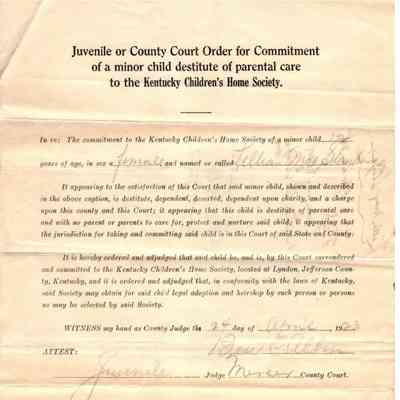 Juvenile or County Court Order for Commitment
of a minor child destitute of parental care
to the Kentucky Children's Home Society.
In re: The commitment to the Kentucky Children's Home Society of a minor child
years of age, in sex a female and named or called
It appearing to the satisfaction of this Court that said minor child, shown and described
in the above caption, is destitute, dependent, deserted, dependent upon charity, and a charge
upon this county and this Court; it appearing that this child is destitute of parental care
and with no parent or parents to care for, protect and nurture said child; it appearing that
the jurisdiction for taking and committing said child is in this Court of said State and County:
It is hereby ordered and adjudged that said child be, and is, by this Court surrendered
and committed to the Kentucky Children's Home Society, located at Lyndon, Jefferson Coun-
ty, Kentucky, and it is ordered and adjudged that, in conformity with the laws of Kentucky,
said Society may obtain for said child legal adoption and heirship by such person or persons
as may be selected by said Society.
WITNESS my hand as County Judge the 24 day of April 1923
ATTEST:
Juvenile Judge Mercer County Court.